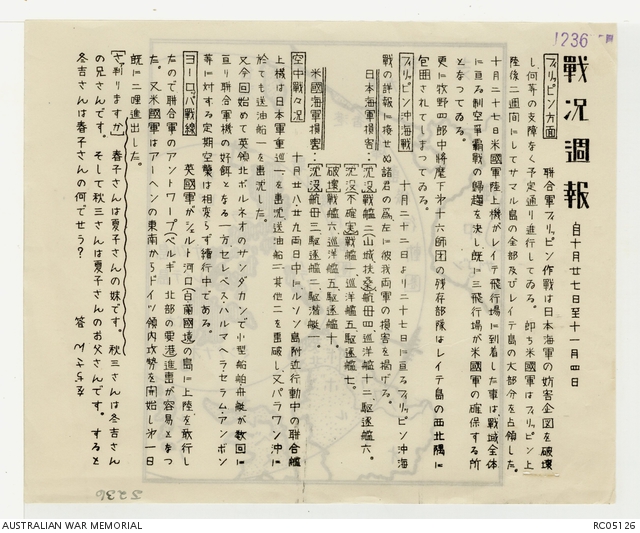 1236
戰況週報
自十月廿七日至十一月四日
フィリッピン方面
聯合軍フィリッピン作戰は日本海軍の妨害企図を破壊
し何等の支障なく予定通り進行してゐる。即ち米國軍はフィリッピン上
陸後二週間にしてサマル島の全部及びレイテ島の大部分を占領した。
十月二十七日米國軍陸上機がレイテ飛行場に到着した事は、戰域全体
に亘る制空爭覇戰の歸趨を決し、既に三飛行場が米國軍の確保する所
となつてゐる。
更に牧野四郎中將麾下第十六師団の残存部隊はレイテ島の西北隅に
包囲されてしまつてゐる。
フィリッピン沖海戰
十月二十二日より二十七日に亘るフィリッピン沖海
戰の詳報に接せぬ諸君の爲左に彼我両軍の損害を掲げる。
日本海軍損害:
沈没 戰艦二(山城、扶桑)航母四、巡洋艦十三、駆逐艦六。
沈没不確実 戰艦一、巡洋艦五、駆逐艦七。
破壊 戰艦六、巡洋艦五、駆逐艦十。
米國海軍損害:
沈没 航母三、駆逐艦二、駆潜艇一。
空中戰々況
十月廿八、廿九両日中にルソン島附近行動中の聯合艦
上機は日本軍重巡一を出沈、送油船二、其他二を出破し、又パラワン沖に
於ても送油船一を出沈した。
又今回始めて英領北ボルネオのサンダカンで小型船舶舟艇が数回に
亘り聯合軍機の好餌となる一方、セレベス、ハルマヘラ、セラム、アンボン
等に対する定期空襲は相変らず續行中である。
ヨーロッパ戰線
英國軍がシェルト河口(白蘭國境)の島に上陸を敢行し
たので聯合軍のアントワープ(ベルギー北部の要港)進出が容易となつ
た。又米國軍はアーヘンの東南からドイツ領内攻勢を開始し第一日
既に二哩進出した。
判りますか
春子さんは夏子さんの妹です。秋三さんは冬吉さん
の兄さんです。そして秋三さんは夏子さんのお父さんです。すると
冬吉さんは春子さんの何でせう?
答
5236
AUSTRALIAN WAR MEMORIAL
RC05126